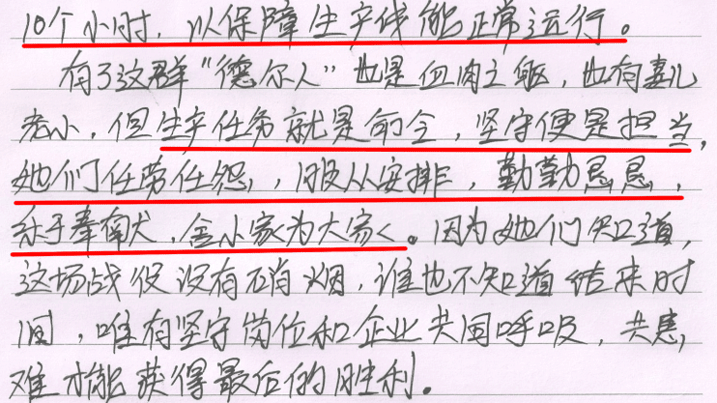 10个小时，以保障生产线能正常运行。
有了这群“德尔人”也是血肉之躯，也有妻儿
老小，但生产任务就是命令，坚守便是担当，
她们任劳任怨，服从安排，勤勤恳恳，
乐于奉献，舍小家为大家。因为她们知道，
这场战役没有硝烟，谁也不知道结束时
间，唯有坚守岗位和企业共同呼吸，共患
难才能获得最后的胜利。